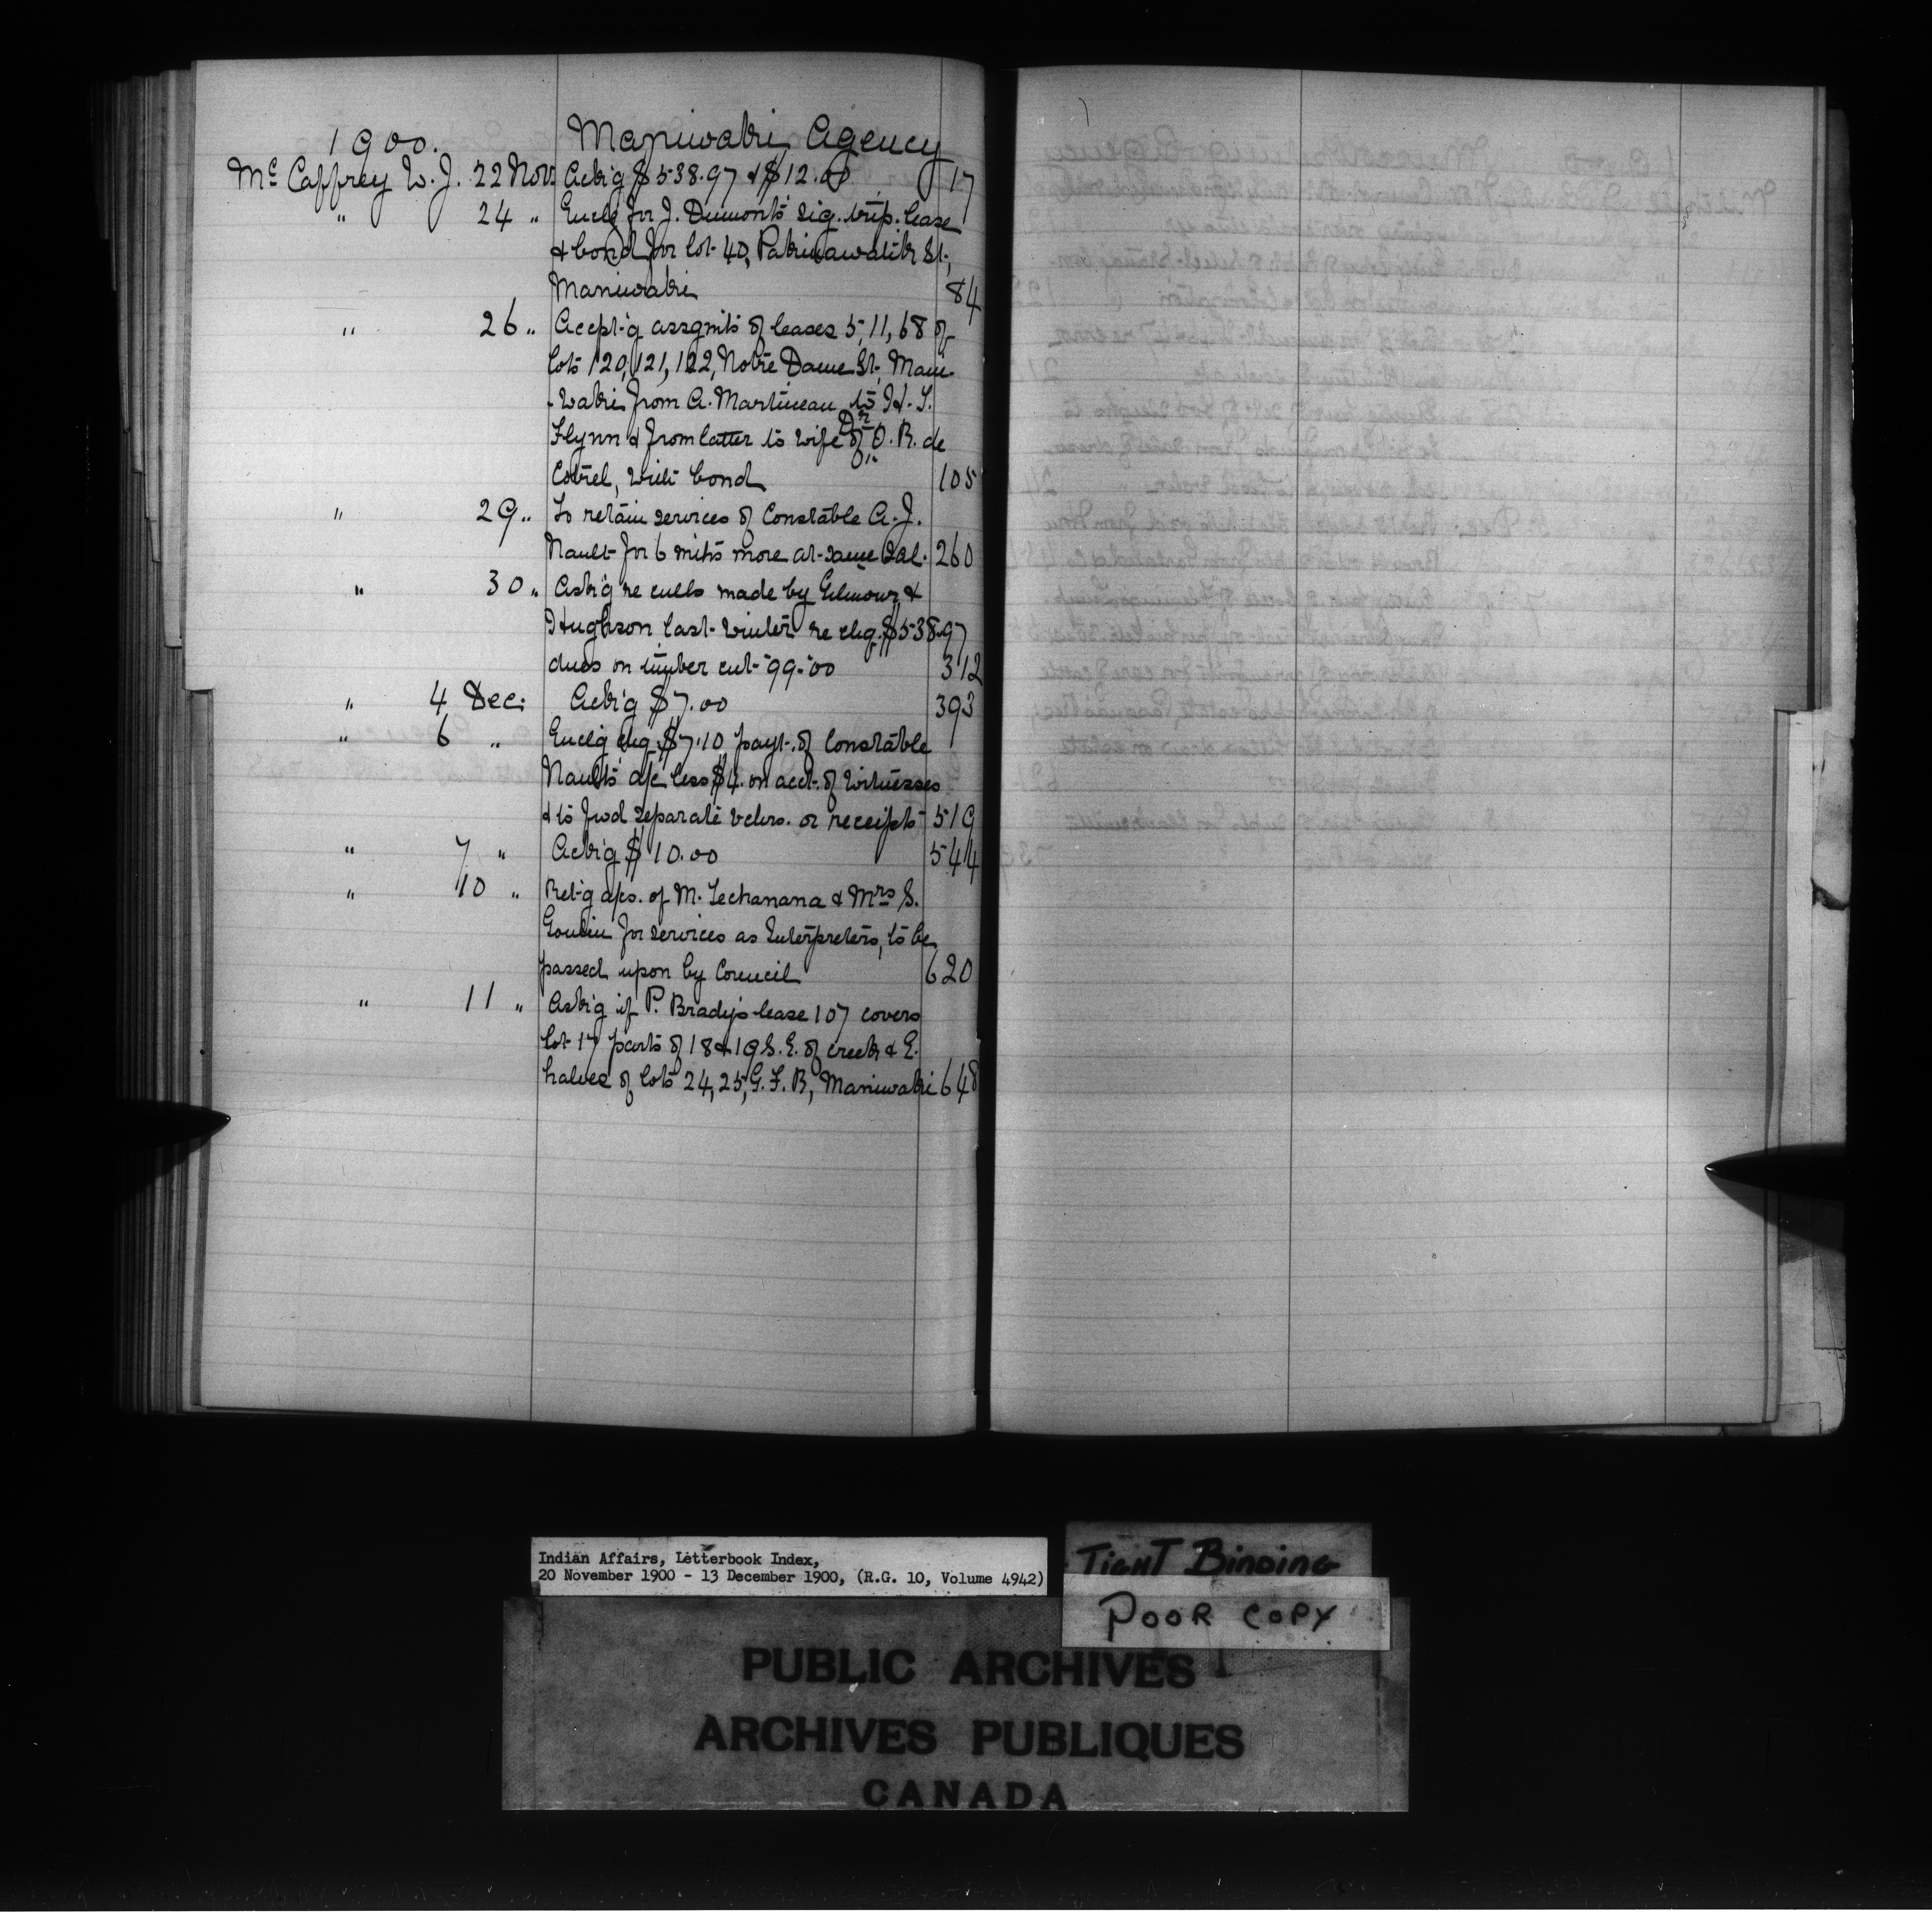 1900. Maniwaki Agency
Mc Caffrey W. J. 22 Nov. Ack'g $538.97 & $12.00 17
" 24 " Enclg for J. Dumont's sig. trip. lease
& bond for lot 40, St.,
Maniwaki 84
" 26 " Accept'g assgmts of leases 5, 11, 68 of
lots 120, 121, 122, Notre Dame St. Mani-
-waki from A. Martineau to H. L.
Flynn & from latter to wife of Dr. O. R. de
Cotret, with bond 105
" 29 " To retain services of Constable A. J.
Nault for 6 mths more at same sal. 260
" 30 " Ask'g re culls made by Gilmour &
Hughson last winter re chq. $538.97
dues on timber cut '99-00 312
" 4 Dec: Ack'g $7.00 393
" 6 " Enclg chq. $7.10 payt. of Constable
Nault's a/c less $4. on acct. of witnesses
& to fwd separate vchrs. or receipts 519
" 7 " Ack'g $10.00 544
" 10 " Ret'g a/cs. of M. Techanana & Mrs S.
Goulin for services as Interpreters, to be
passed upon by Council 620
" 11 " Ask'g if P. Brady's lease 107 covers
lot 17 parts of 18 & 19 S. E. of creek & E.
halves of lots 24, 25, G. F. R, Maniwaki 648
Indian Affairs, Letterbook Index,
20 November 1900 - 13 December 1900, (R.G. 10, Volume 4942)
TIGHT BINDING
POOR COPY
PUBLIC ARCHIVES
ARCHIVES PUBLIQUES
CANADA